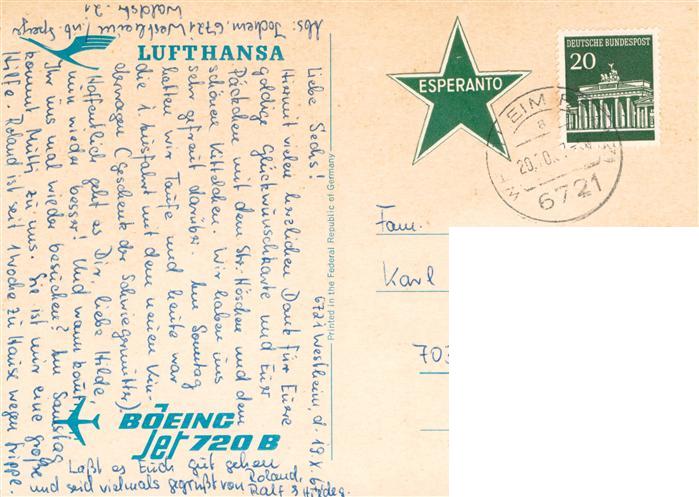 Abs. Jochem, 6721 Westheim
Waldstr. 21
LUFTHANSA
6721 Westheim, d. 19.X.6
Liebe Sechs!
Hiermit vielen herzlichen Dank für Eure
goldige Glückwunschkarte und Euer
Päckchen mit dem Str. Höschen und dem
schönen Kittelchen. Wir haben uns
sehr gefreut darüber. Am Sonntag
hatten wir Taufe und heute war
die 1. Ausfahrt mit dem neuen Kin-
derwagen (Geschenk der Schwiegermütter).
Hoffentlich geht es Dir, liebe Hilde,
nun wieder besser! Und wann könnt
Ihr uns mal wieder besuchen? Am Samstag
kommt Mutti zu uns. Sie ist mir eine große
Hilfe. Roland ist seit 1 Woche zu Hause wegen Grippe
Laßt es Euch gut gehen
und seid vielmals gegrüßt von Roland,
Ralf & Hildeg.
BOEING
Jet 720 B
Printed in the Federal Republic of Germany
ESPERANTO
DEUTSCHE BUNDESPOST
20
a
20.10.
6721
Fam.
Karl
703